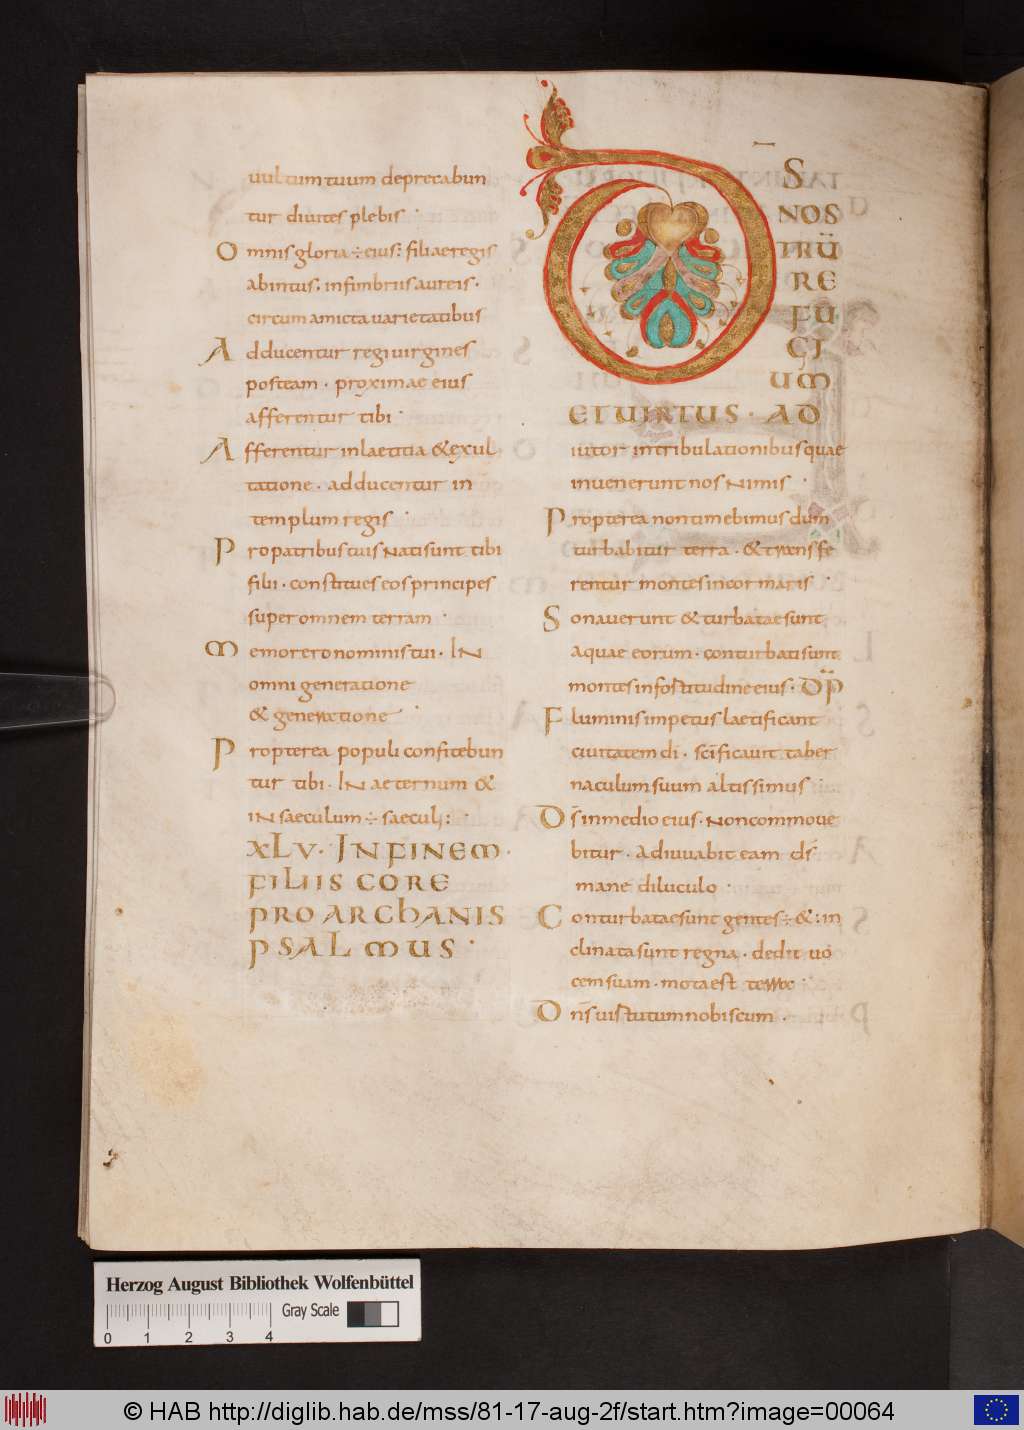 uultum tuum deprecabun
tur diuites plebis ·
Omnis gloria ÷ eius : filiae regis
abintus : infimbriis aureis ·
circum amicta uarietatibus
Adducentur regi uirgines
posteam · proximae eius
afferentur tibi ·
Afferentur inlaetitia & exul
tatione · adducentur in
templum regis ·
Propatribus tuis nati sunt tibi
filii · constitues eos principes
super omnem terram ·
Memor ero nominis tui · IN
omni generatione
& generatione ·
Propterea populi confitebun
tur tibi · IN aeternum &
iN saeculum ÷ saeculi :
XLV · INFINEM ·
FILIIS CORE
PRO ARCHANIS
PSALMUS ·
DS̄
NOS
TRŪ
RE
FU
GI
UM
ET UIRTUS · AD
iutor intribulationibus quae
inuenerunt nos Nimis ·
Propterea non timebimus dum
turbabitur terra · & transfe
rentur montes incor maris ·
Sonauerunt & turbatae sunt
aquae eorum · conturbati sunt
montes infortitudine eius · DP
Fluminis impetus laetificant
ciuitatem di · sc̄ificauit taber
naculum suum altissimus
Ds̄ inmedio eius · Noncommoue
bitur · adiuuabit eam ds̄
mane diluculo ·
Conturbatae sunt gentes ÷ & : in
clinata sunt regna · dedit uo
cem suam · mota est terra ·
Dn̄s uirtutum nobiscum ·
Herzog August Bibliothek Wolfenbüttel
Gray Scale
0 1 2 3 4
© HAB http://diglib.hab.de/mss/81-17-aug-2f/start.htm?image=00064